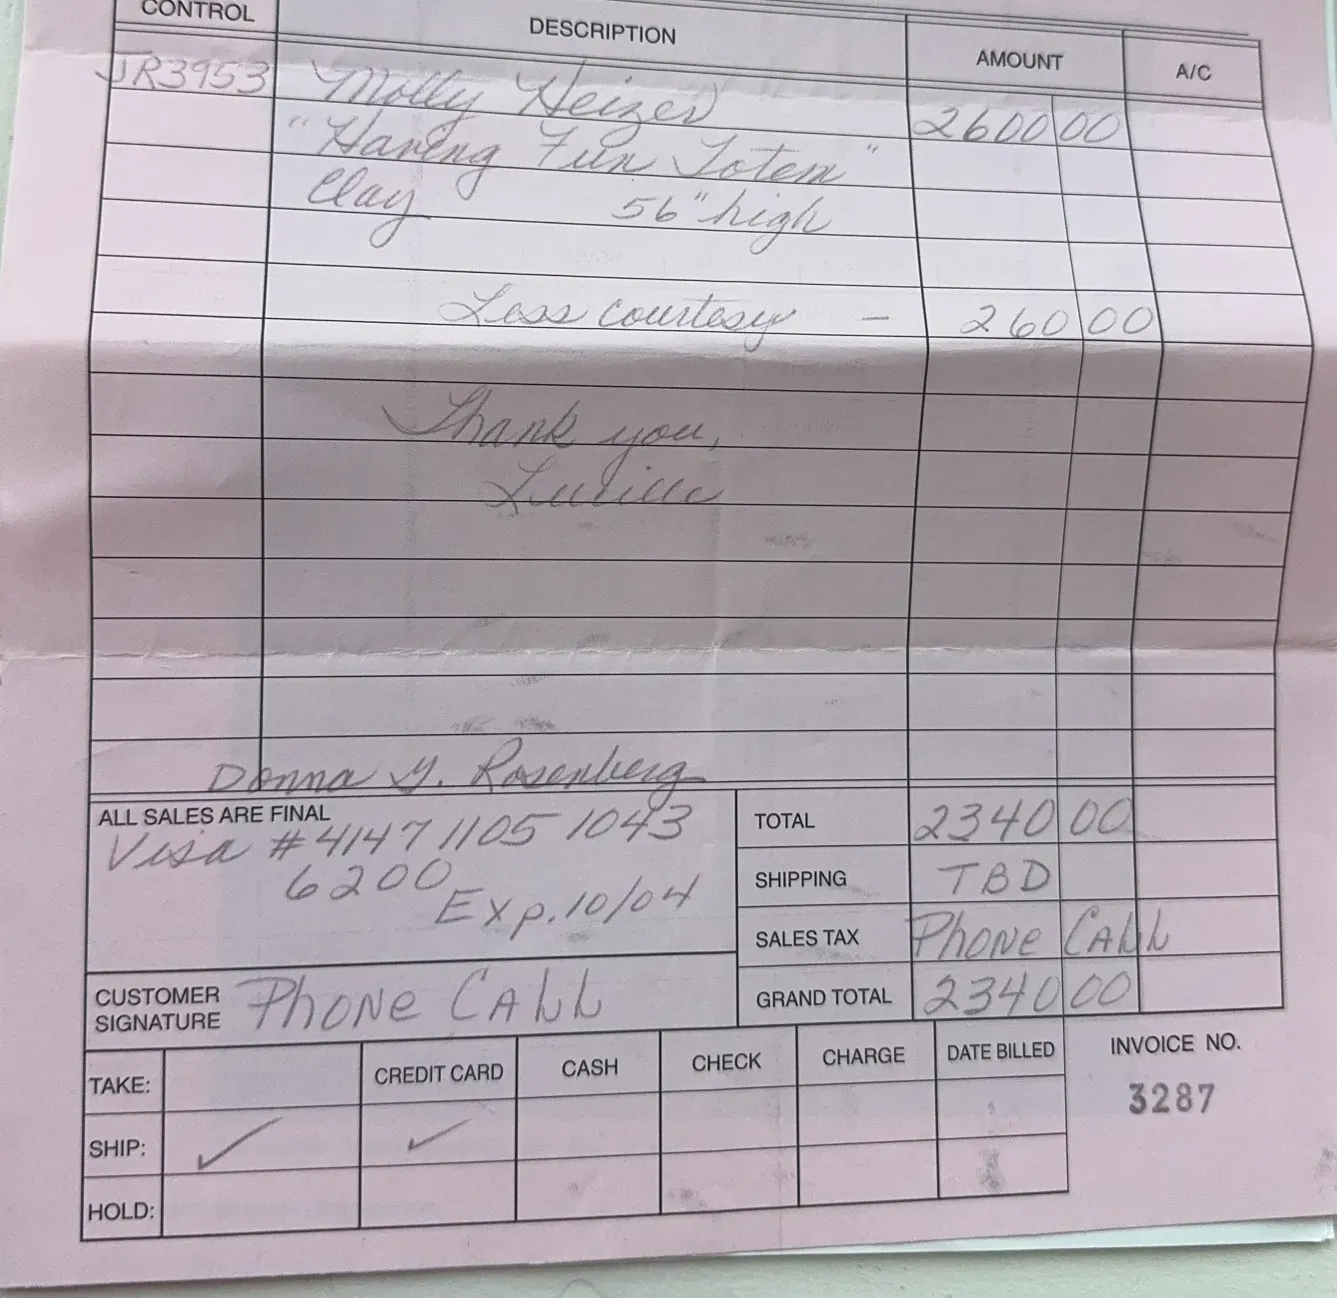 CONTROL DESCRIPTION AMOUNT A/C
JR3953 Molly Heizer 2600 00
"Haring Fun Totem"
Clay 56" high
Less courtesy - 260 00
Thank you,
Lucille
Donna G. Rosenberg
ALL SALES ARE FINAL
Visa #4147 1105 1043
6200
Exp. 10/04
TOTAL 2340 00
SHIPPING TBD
SALES TAX PHONE CALL
GRAND TOTAL 2340 00
CUSTOMER
SIGNATURE PHONE CALL
CREDIT CARD CASH CHECK CHARGE DATE BILLED INVOICE NO.
TAKE:
3287
SHIP: ✓ ✓
HOLD: